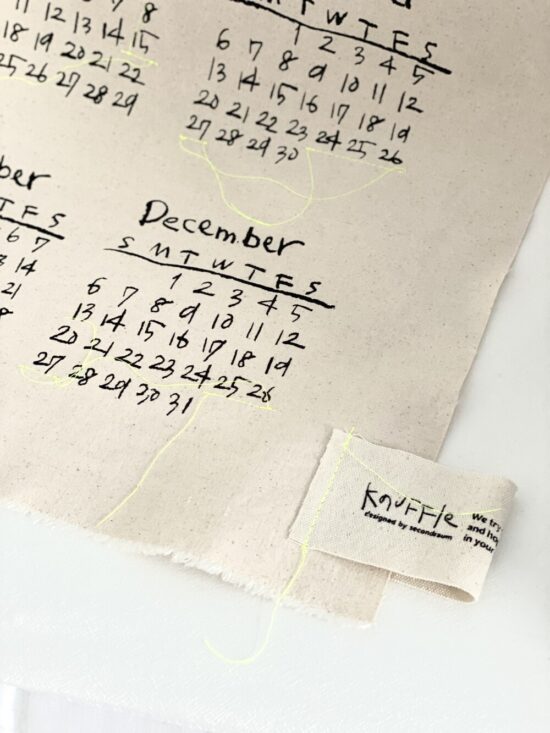 7 8
11 12 13 14 15
18 19 20 21 22
25 26 27 28 29
M T W T F S
1 2 3 4 5
6 7 8 9 10 11 12
13 14 15 16 17 18 19
20 21 22 23 24 25 26
27 28 29 30
ber
T F S
6 7
14
21
December
S M T W T F S
1 2 3 4 5
6 7 8 9 10 11 12
13 14 15 16 17 18 19
20 21 22 23 24 25 26
27 28 29 30 31
Knuffle
designed by secondraum
We try
and ho
in your